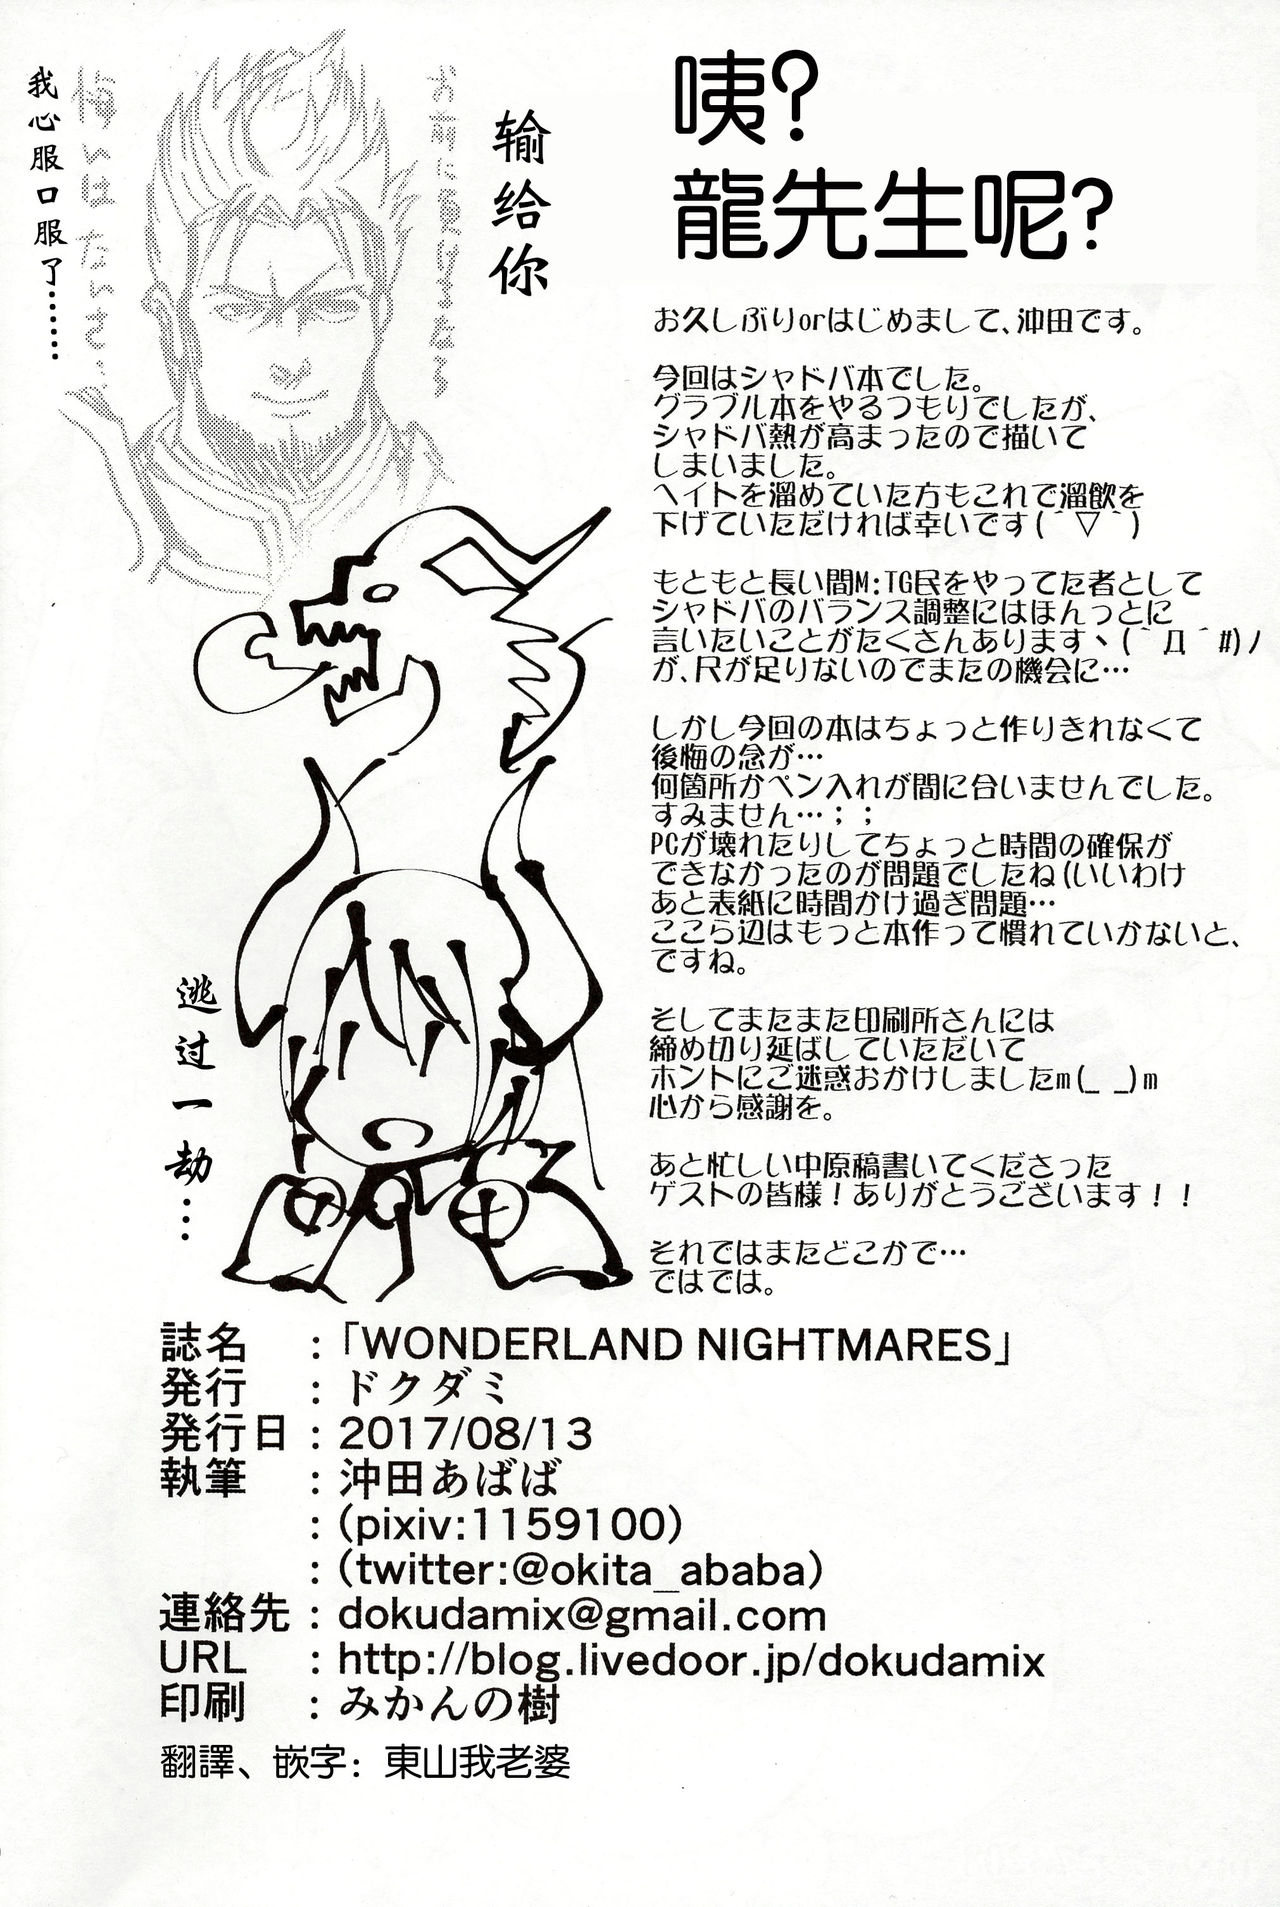 咦?
龍先生呢?
输给你
我心服口服了……
お前に負けるなら
悔いはないさ…
お久しぶりorはじめまして、沖田です。
今回はシャドバ本でした。
グラブル本をやるつもりでしたが、
シャドバ熱が高まったので描いて
しまいました。
ヘイトを溜めていた方もこれで溜飲を
下げていただければ幸いです(´▽`)
もともと長い間M:TG民をやってた者として
シャドバのバランス調整にはほんっとに
言いたいことがたくさんありますヽ(`Д´#)ﾉ
が、尺が足りないのでまたの機会に…
しかし今回の本はちょっと作りきれなくて
後悔の念が…
何箇所かペン入れが間に合いませんでした。
すみません…；；
PCが壊れたりしてちょっと時間の確保が
できなかったのが問題でしたね(いいわけ
あと表紙に時間かけ過ぎ問題…
ここら辺はもっと本作って慣れていかないと、
ですね。
そしてまたまた印刷所さんには
締め切り延ばしていただいて
ホントにご迷惑おかけしましたm(_ _)m
心から感謝を。
あと忙しい中原稿書いてくださった
ゲストの皆様！ありがとうございます！！
それではまたどこかで…
ではでは。
逃过一劫…
誌名 :「WONDERLAND NIGHTMARES」
発行 : ドクダミ
発行日 : 2017/08/13
執筆 : 沖田あばば
: (pixiv:1159100)
: (twitter:@okita_ababa)
連絡先 : dokudamix@gmail.com
URL : http://blog.livedoor.jp/dokudamix
印刷 : みかんの樹
翻譯、嵌字: 東山我老婆